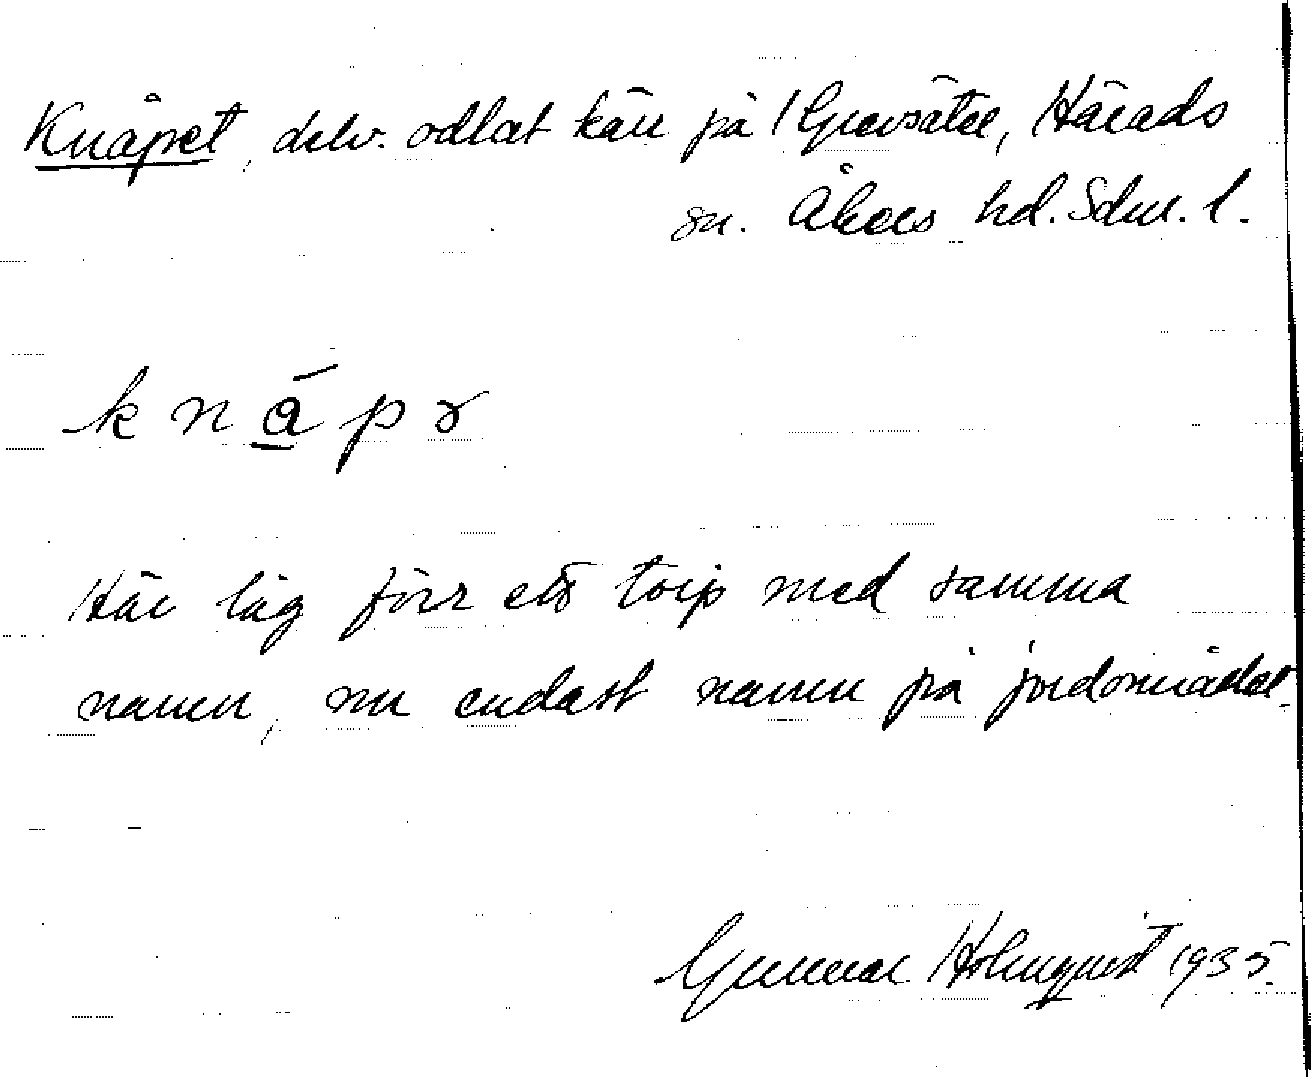 Knåpet, delv. odlat kärr på Grevsäter, Härads
sn. Åkers hd. Sdml. l.
k n å p ɤ
Här låg förr ett torp med samma
namn, nu endast namn på jordområdet.
Gunnar Holmquist 1935.